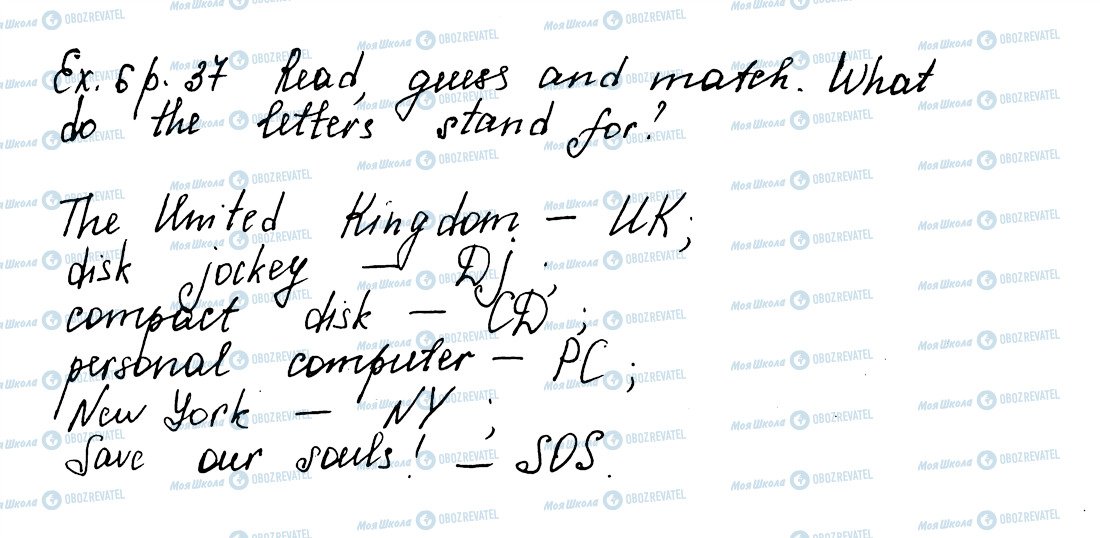 Ex. 6 p. 37 Read, guess and match. What
do the letters stand for?
The United Kingdom – UK;
disk jockey – DJ;
compact disk – CD;
personal computer – PC;
New York – NY;
Save our souls! – SOS.